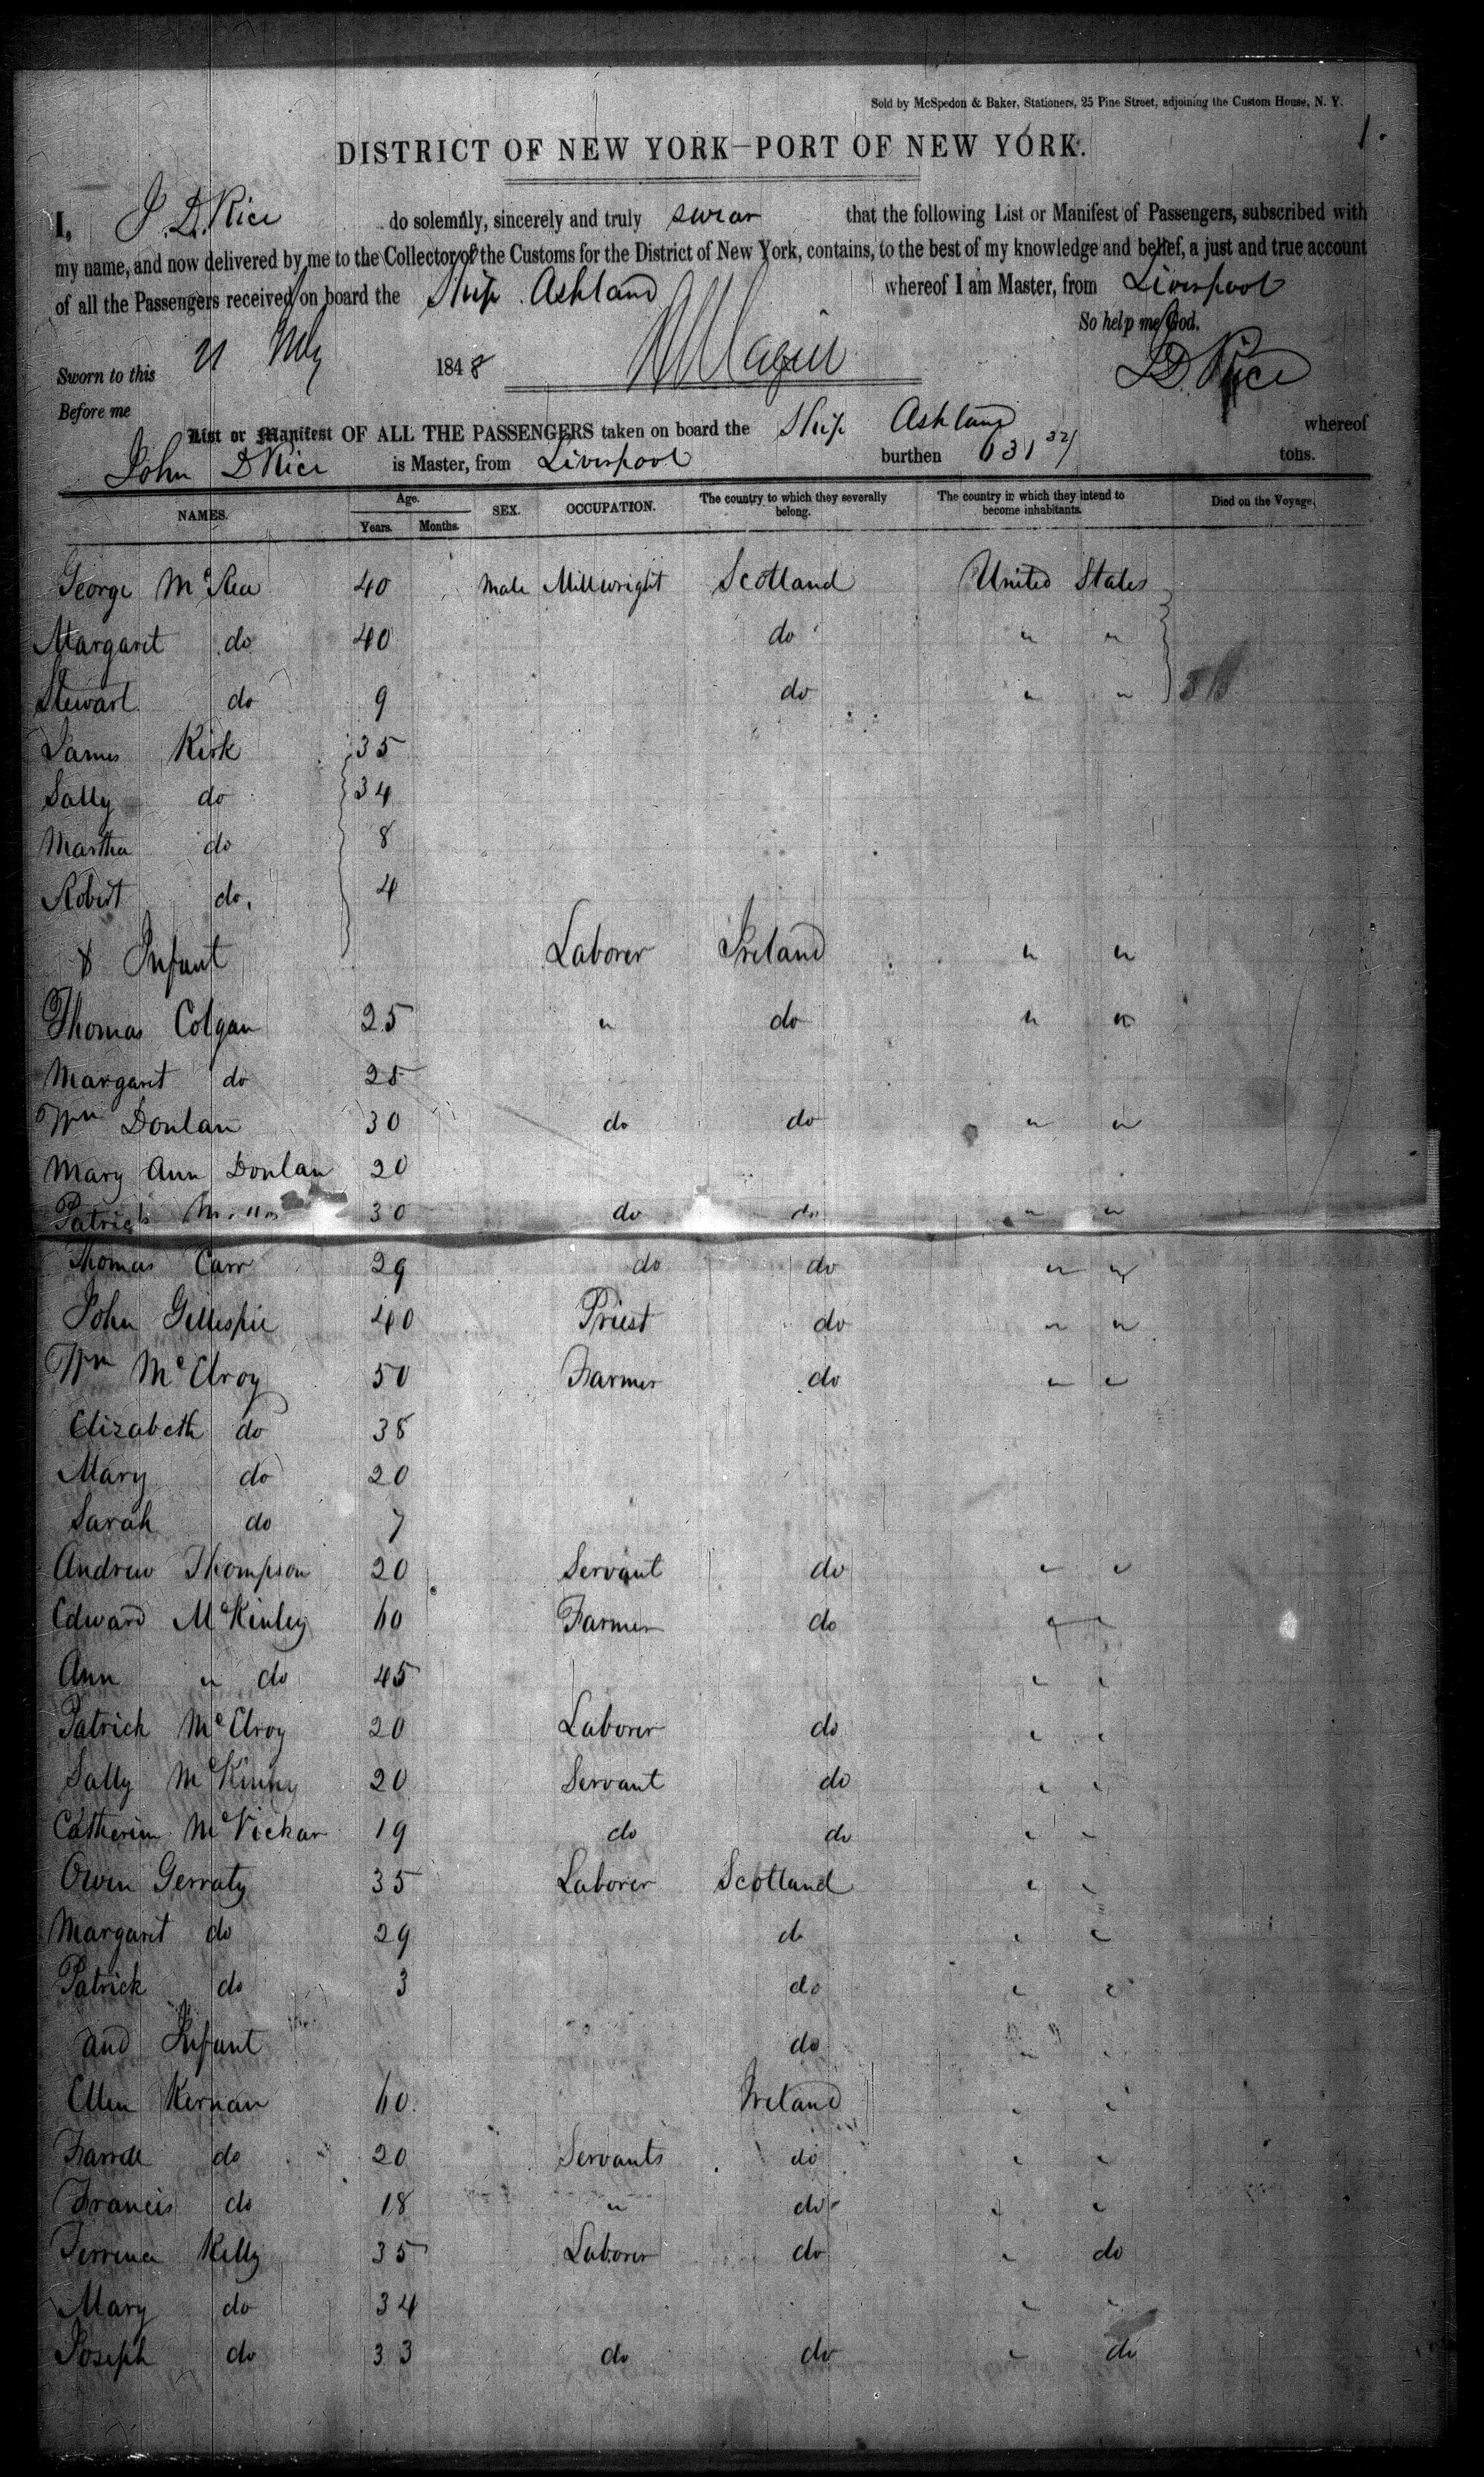 Sold by McSpedon & Baker, Stationers, 25 Pine Street, adjoining the Custom House, N. Y.
1.
DISTRICT OF NEW YORK—PORT OF NEW YORK.
I, J. D. Rice do solemnly, sincerely and truly swear that the following List or Manifest of Passengers, subscribed with
my name, and now delivered by me to the Collector of the Customs for the District of New York, contains, to the best of my knowledge and belief, a just and true account
of all the Passengers received on board the Ship Ashland whereof I am Master, from Liverpool
So help me God.
Sworn to this 21 1848
J D Rice
Before me
List or Manifest OF ALL THE PASSENGERS taken on board the Ship Ashland whereof
John D Rice is Master, from Liverpool burthen 631 32/ tons.
NAMES. Age. Years. Months. SEX. OCCUPATION. The country to which they severally belong. The country in which they intend to become inhabitants. Died on the Voyage.
George McRea 40 Male Millwright Scotland United States
Margaret do 40 do " "
Stewart do 9 do " "
James Kirk 35
Sally do 34
Martha do 8
Robert do. 4
& Infant Laborer Ireland " "
Thomas Colgan 25 " do " "
Margaret do 25
Wm Donlan 30 do do " "
Mary Ann Donlan 20
Patrick 30 do do " "
Thomas Carr 29 do do " "
John Gillespie 40 Priest do " "
Wm McElroy 50 Farmer do " "
Elizabeth do 38
Mary do 20
Sarah do 7
Andrew Thompson 20 Servant do " "
Edward McKinley 60 Farmer do " "
Ann " do 45 " "
Patrick McElroy 20 Laborer do " "
Sally McKinny 20 Servant do " "
Catherine McVickar 19 do do " "
Owen Gerraty 35 Laborer Scotland " "
Margaret do 29 do " "
Patrick do 3 do " "
and Infant do " "
Ellen Kernan 60 Ireland " "
do 20 Servants do " "
Francis do 18 " do " "
Terrence Kelly 35 Laborer do " do
Mary do 34 " "
Joseph do 33 do do " do